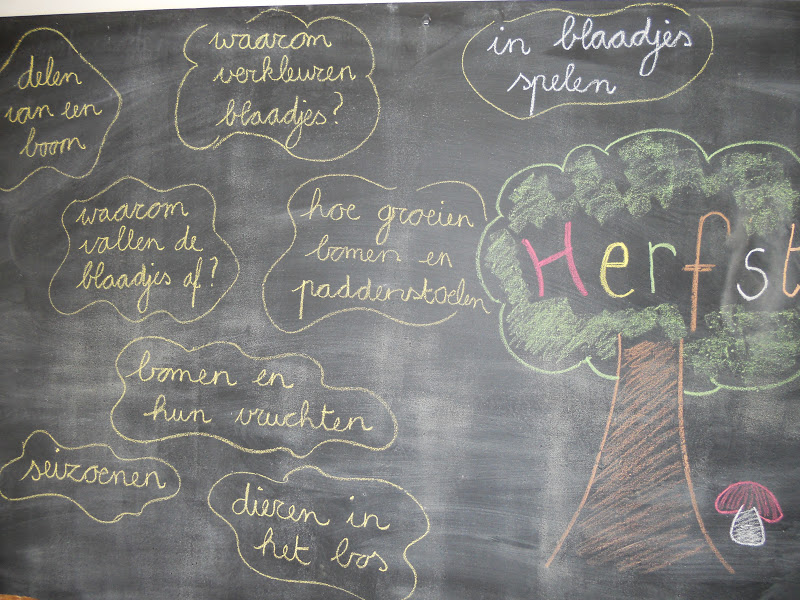 delen
van een
boom
waarom
verkleuren
blaadjes?
in blaadjes
spelen
waarom
vallen de
blaadjes af?
hoe groeien
bomen en
paddenstoelen
Herfst
bomen en
hun vruchten
seizoenen
dieren in
het bos